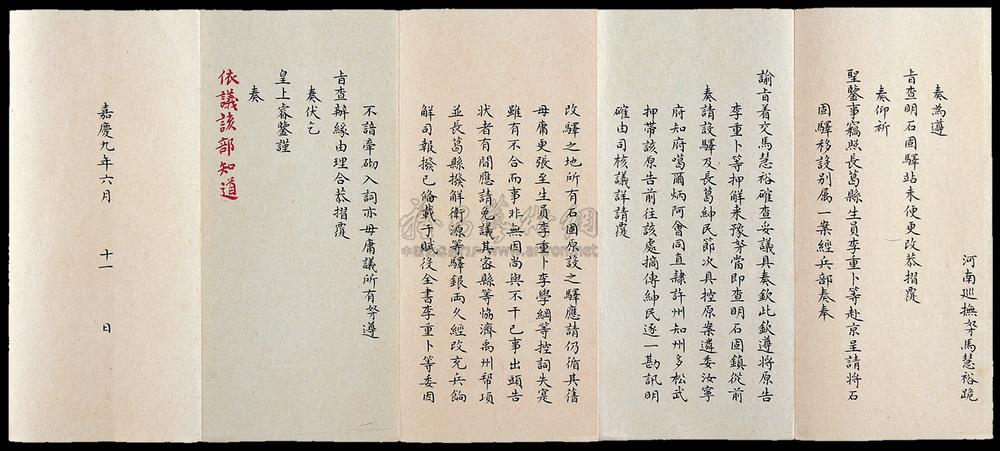 河南巡撫奴馬慧裕跪
奏為遵
旨查明石固驛站未便更改恭摺覆
奏仰祈
聖鑒事竊照長葛縣生員李重卜等赴京呈請將石
固驛移設别属一案經兵部奏奉
諭旨着交馬慧裕確查妥議具奏欽此欽遵將原告
李重卜等押解来豫奴當即查明石固鎮從前
奏請設驛及長葛紳民節次具控原案遴委汝寧
府知府噶爾炳阿會同直隷許州知州多松武
押帶該原告前往該處摘傳紳民逐一勘訊明
確由司核議詳請覆
改驛之地所有石固原設之驛應請仍循其舊
毋庸更張至生員李重卜李學綱等控詞失寔
雖有不合而事非無因尚與不干已事出頭告
狀者有間應請免議其密縣等協濟禹州帮項
並長葛縣撥解衛源等驛銀両久經改充兵餉
解司報撥已偹載于賦役全書李重卜等委因
不諳牽砌入詞亦毋庸議所有奴遵
旨查辦緣由理合恭摺覆
奏伏乞
皇上睿鑒謹
奏
依議該部知道
嘉慶九年六月 十一 日